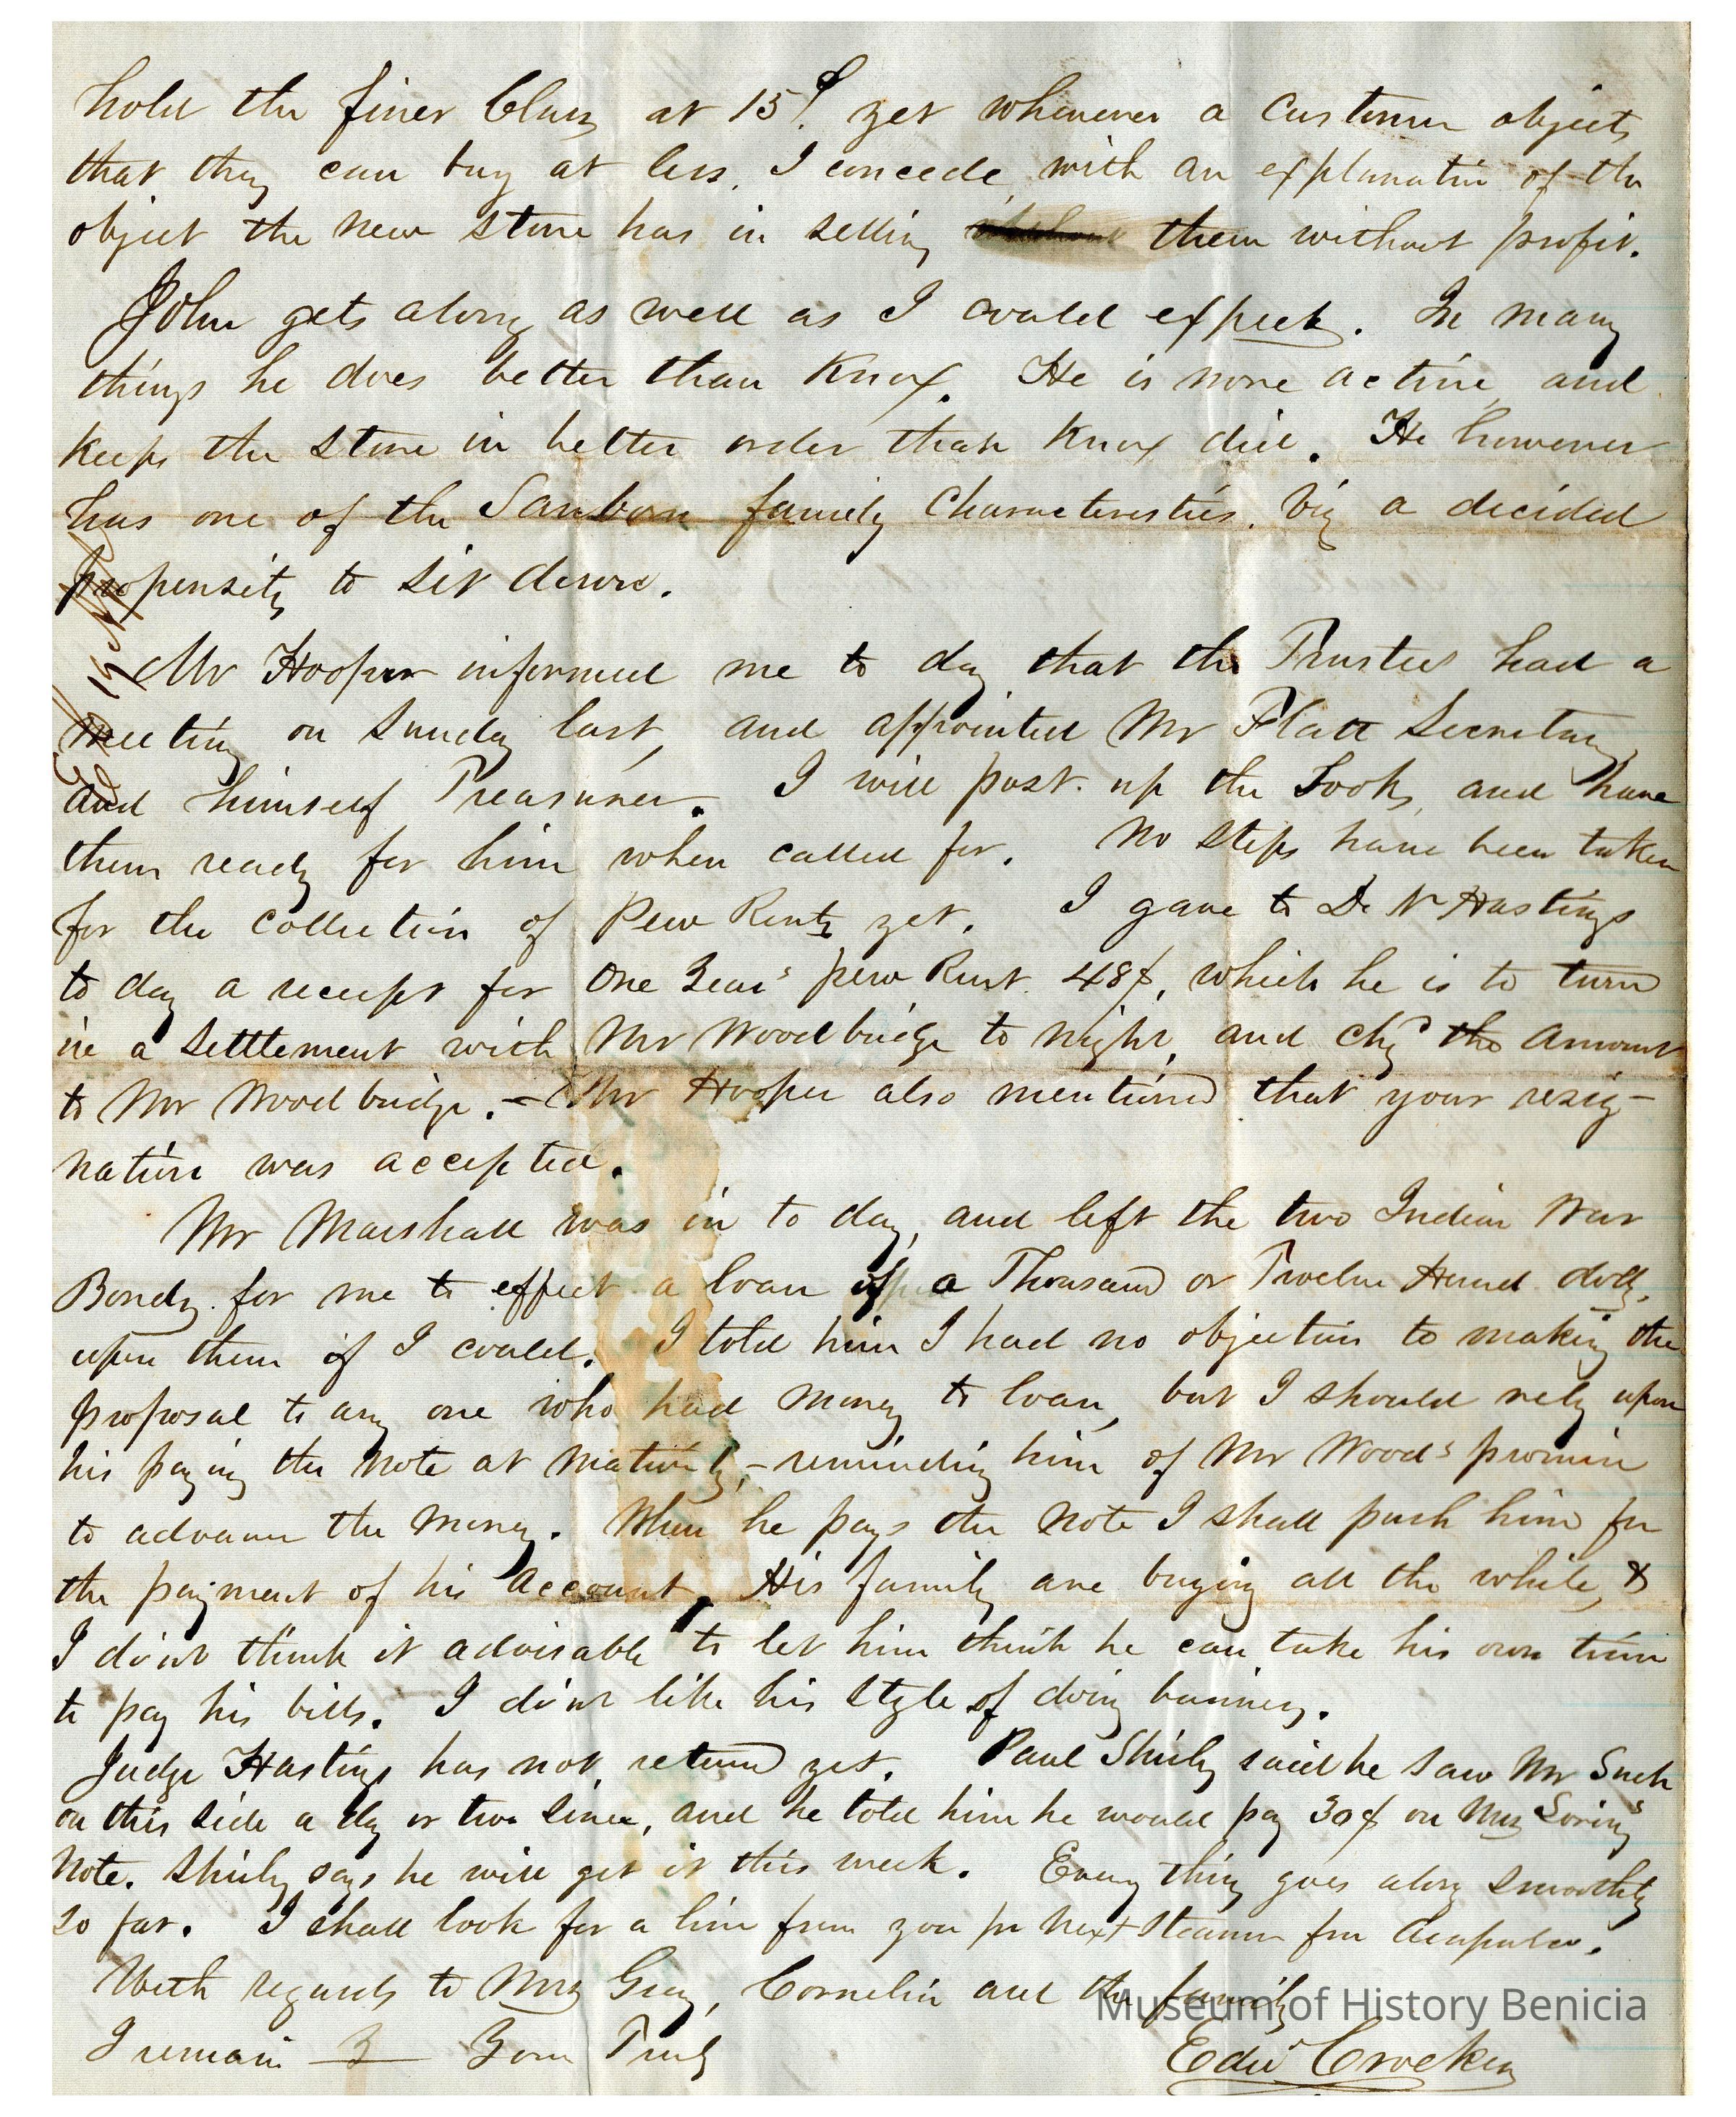 hold the finer Class at 15¢. yet whenever a Customer objects
that they can buy at less, I concede with an explanation of the
object the new store has in selling without them without profit.
John gets along as well as I could expect. In many
things he does better than Knox. He is more active and
keeps the store in better order than Knox did. He however
has one of the Sanborn family Characteristics. Viz a decided
propensity to sit down.
Mr Hooper informed me to day that the Trustees had a
meeting on Sunday last, and appointed Mr Platt Secretary
and himself Treasurer. I will post up the Books, and have
them ready for him when called for. No steps have been taken
for the collection of Pew Rents yet. I gave to D N Hastings
to day a receipt for One Year's pew Rent 48$, which he is to turn
in a settlement with Mr Woodbridge to night, and chgd the Amount
to Mr Woodbridge. - Mr Hooper also mentioned that your resig-
nation was accepted.
Mr Marshall was in to day, and left the two Indian War
Bonds for me to effect a loan of a Thousand or Twelve Hund dolls.
upon them if I could. I told him I had no objection to making the
proposal to any one who had money to loan, but I should rely upon
his paying the Note at maturity, - reminding him of Mr Wood's promise
to advance the money. When he pays the Note I shall push him for
the payment of his account. His family are buying all the while, &
I do'nt think it advisable to let him think he can take his own time
to pay his bills. I do'nt like his style of doing business.
Judge Hastings has not returned yet. Paul Shirly said he saw Mr
on this side a day or two since, and he told him he would pay 30$ on Mrs Loring's
Note. Shirly says he will get it this week. Every thing goes along smoothly
so far. I shall look for a line from you pr next steamer from Acapulco.
With regards to Mrs Gray, Cornelia and the family
I remain Your Truly
Edw Crocker
Museum of History Benicia